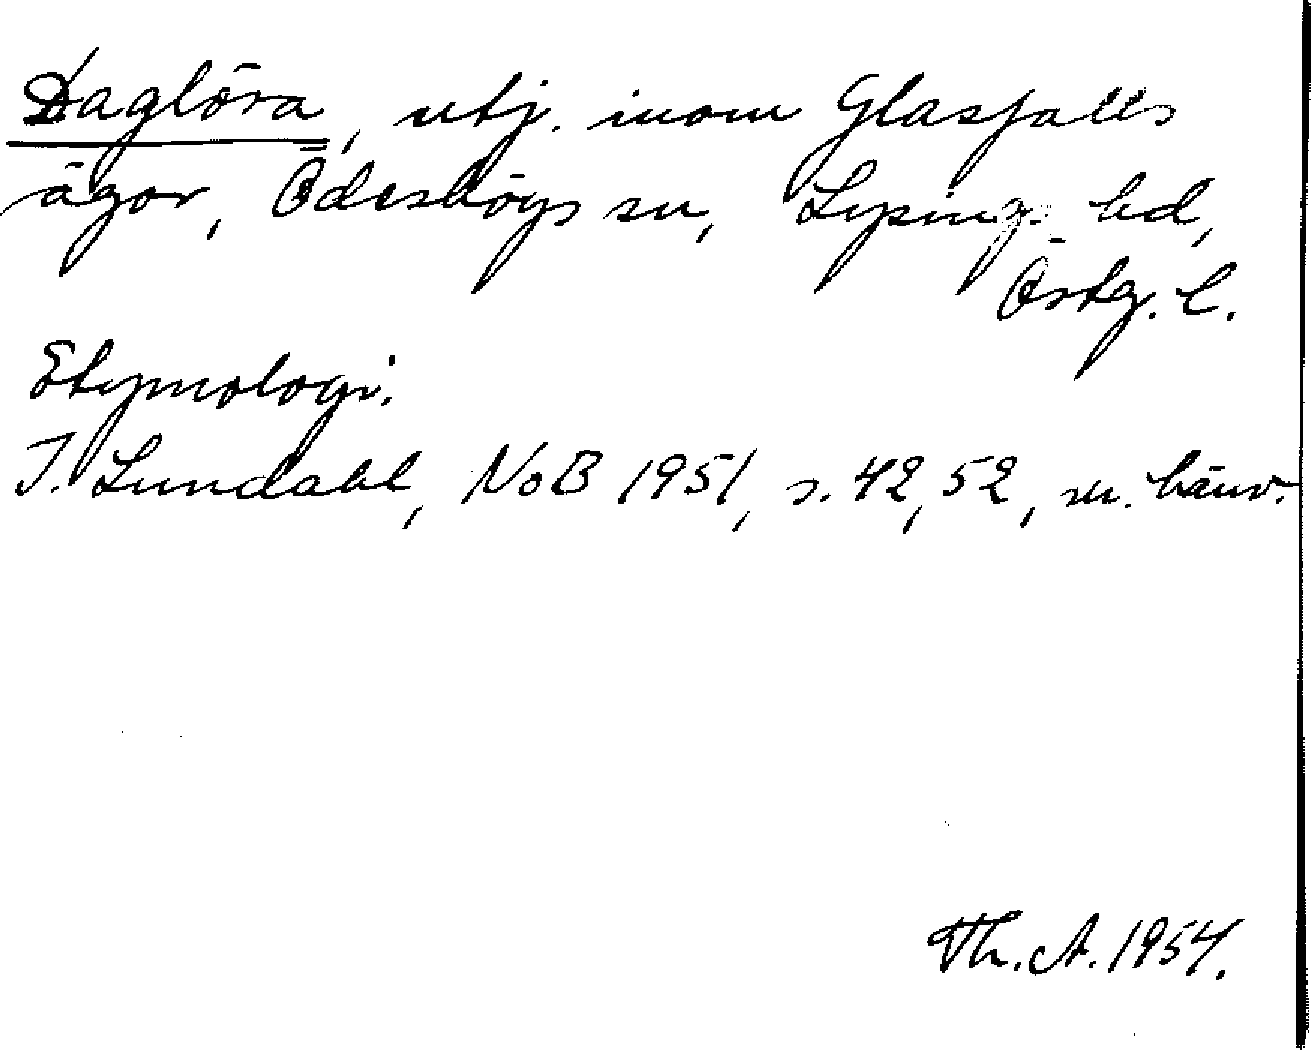 Daglöra, utj. inom Glasfalls
ägor, Ödeshögs sn, Lysings hd,
Östg. l.
Etymologi.
I. Lundahl, NoB 1951, s. 42, 52, m. hänv.
Th. A. 1954.